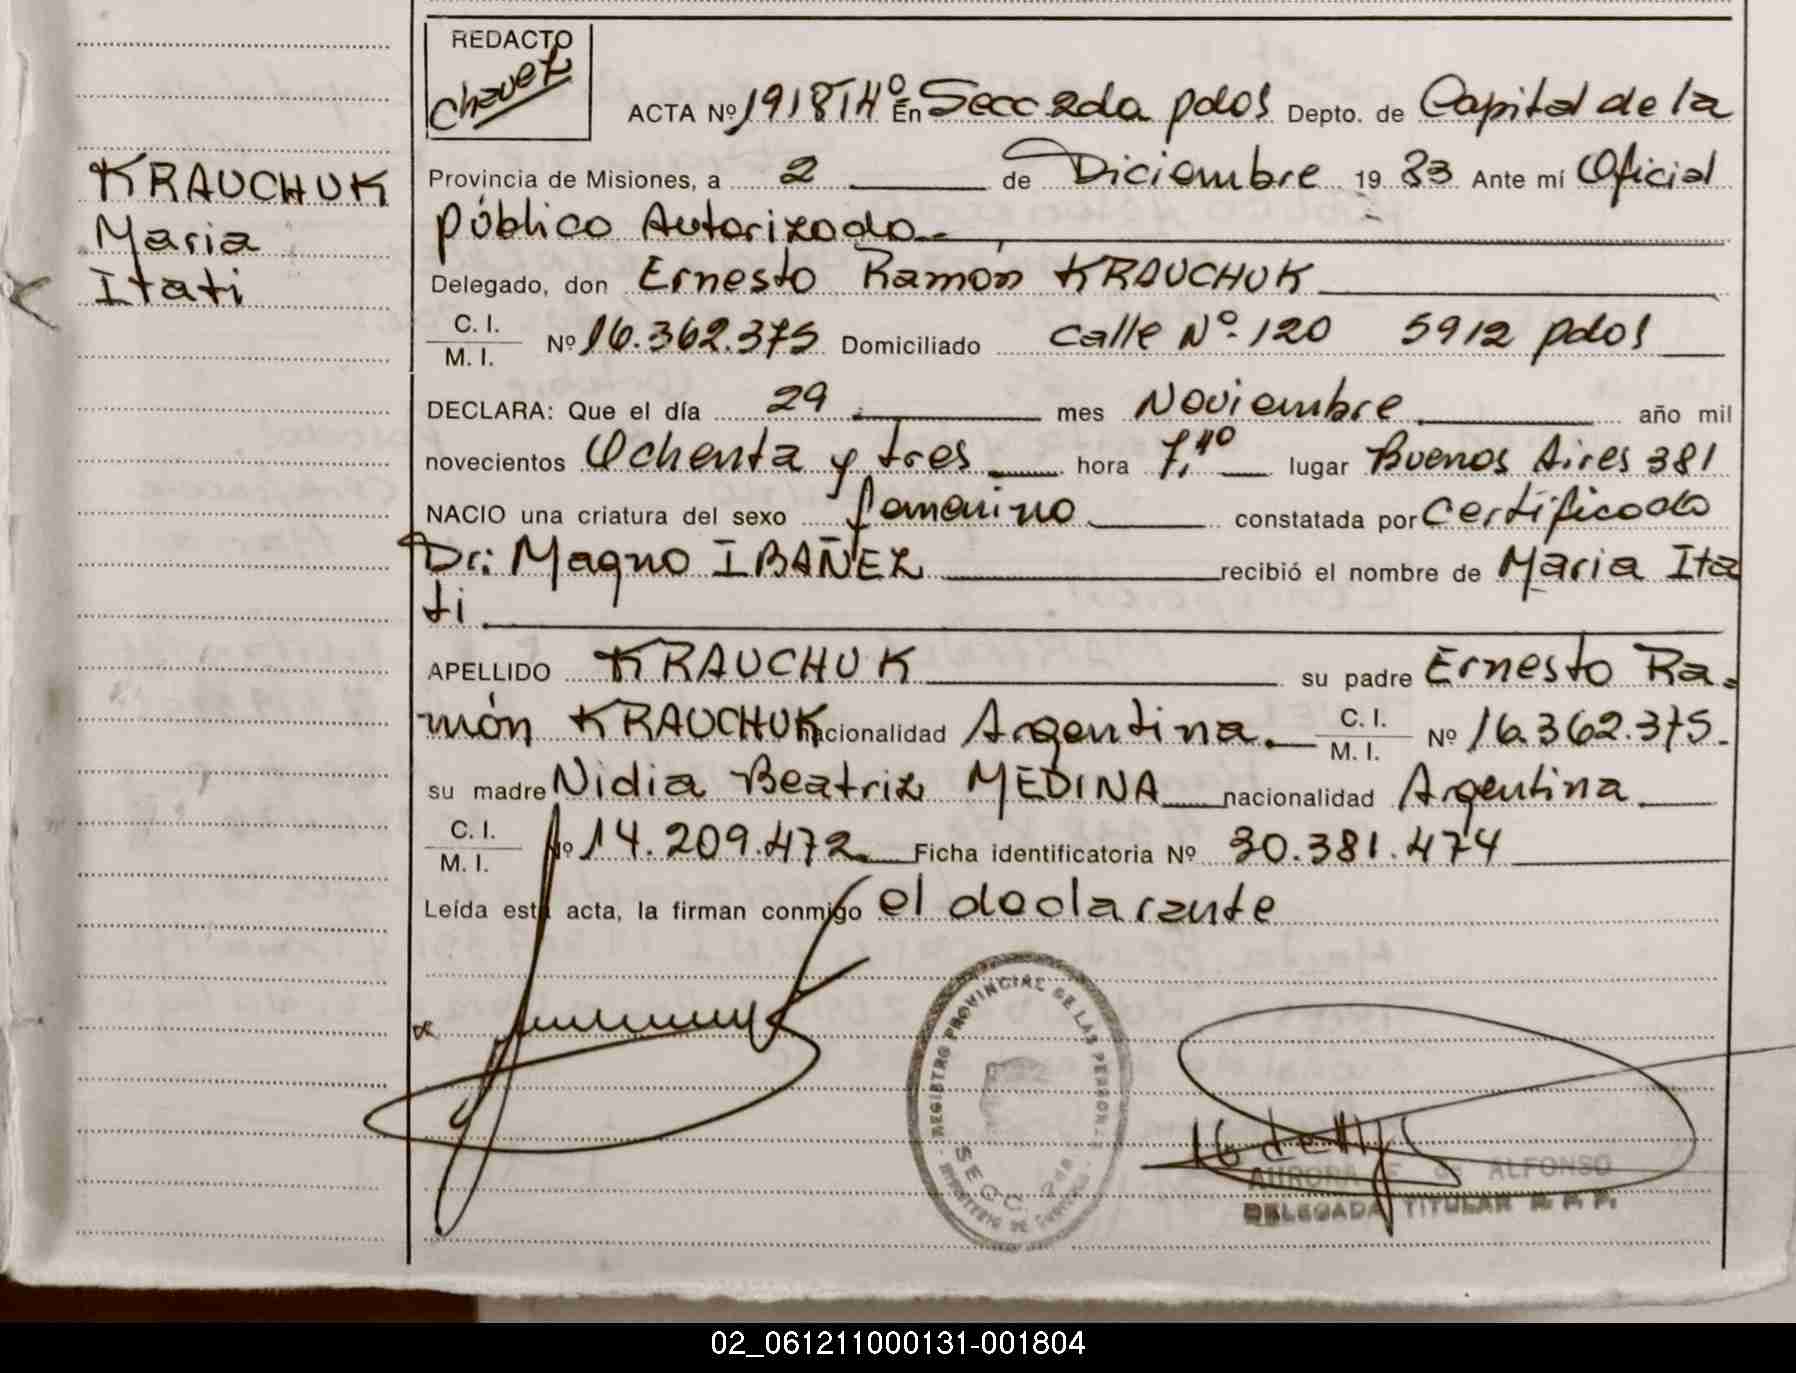 REDACTO
Chavez
ACTA Nº 1918 T4º En Secc 2da pdas Depto. de Capital de la
KRAUCHUK
Provincia de Misiones, a 2 de Diciembre 19 83 Ante mí Oficial
Maria
público Autorizado.-
Itati
Delegado, don Ernesto Ramón KRAUCHUK
C. I.
M. I.
Nº 16.362.375 Domiciliado Calle Nº 120 5912 pdas
DECLARA: Que el día 29 mes Noviembre año mil
novecientos Ochenta y tres hora 7,40 lugar Buenos Aires 381
NACIO una criatura del sexo femenino constatada por Certificado
Dr: Magno IBAÑEZ recibió el nombre de Maria Ita
ti
APELLIDO KRAUCHUK su padre Ernesto Ra-
món KRAUCHUK nacionalidad Argentina.- C. I. M. I. Nº 16.362.375.
su madre Nidia Beatriz MEDINA nacionalidad Argentina
C. I.
M. I.
Nº 14.209.472 Ficha identificatoria Nº 30.381.474
Leída esta acta, la firman conmigo el declarante
REGISTRO PROVINCIAL DE LAS PERSONAS
SECC. 2da
MINISTERIO DE GOBIERNO
AURORA ALFONSO
DELEGADA TITULAR R. P. P.
02_061211000131-001804